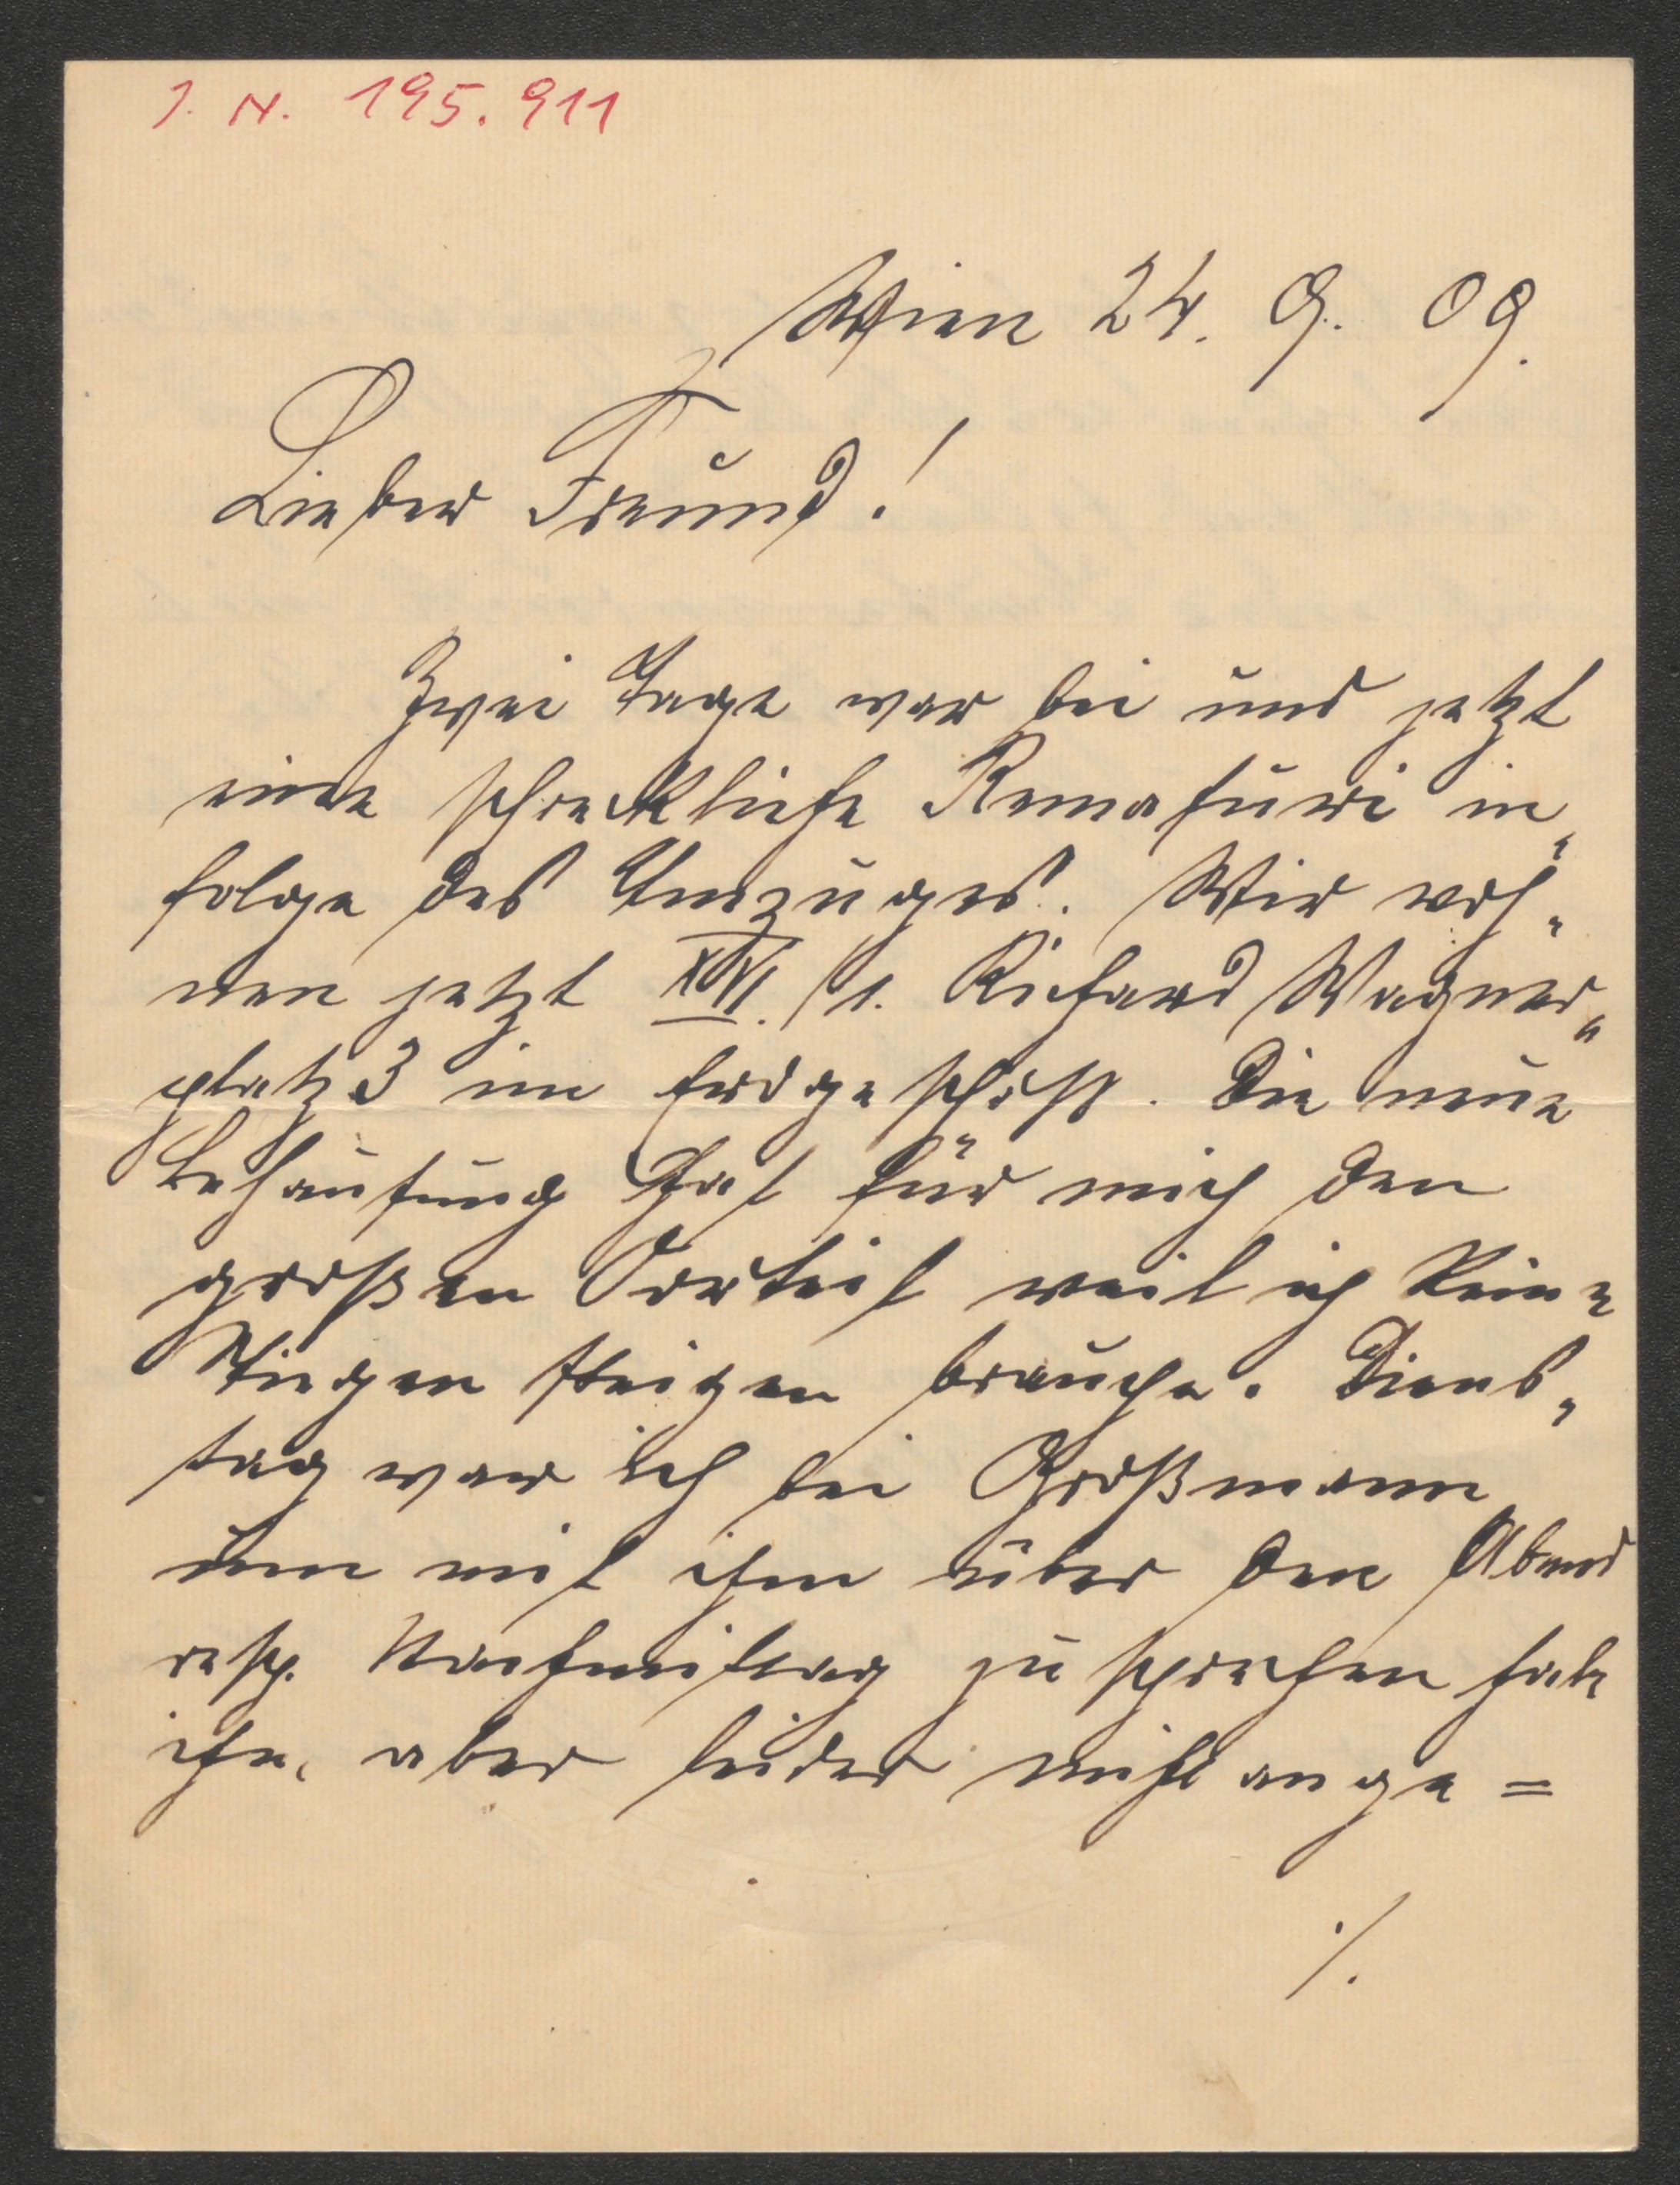 I. N. 195.911
Wien 24. 9. 09.
Lieber Freund!
Zwei Tage war bei uns jetzt
eine schreckliche Remasuri in„
folge des Umzuges. Wir woh„
nen jetzt XVI./1. Richard Wagner„
platz 3 im Erdgeschoß. Die neue
Behausung hat für mich den
großen Vorteil weil ich keine
Stiegen steigen brauche. Diens„
tag war ich bei Großmann
um mit ihm über den Abend
resp. Nachmittag zu sprechen habe
ihn, aber leider nicht ange=
./.